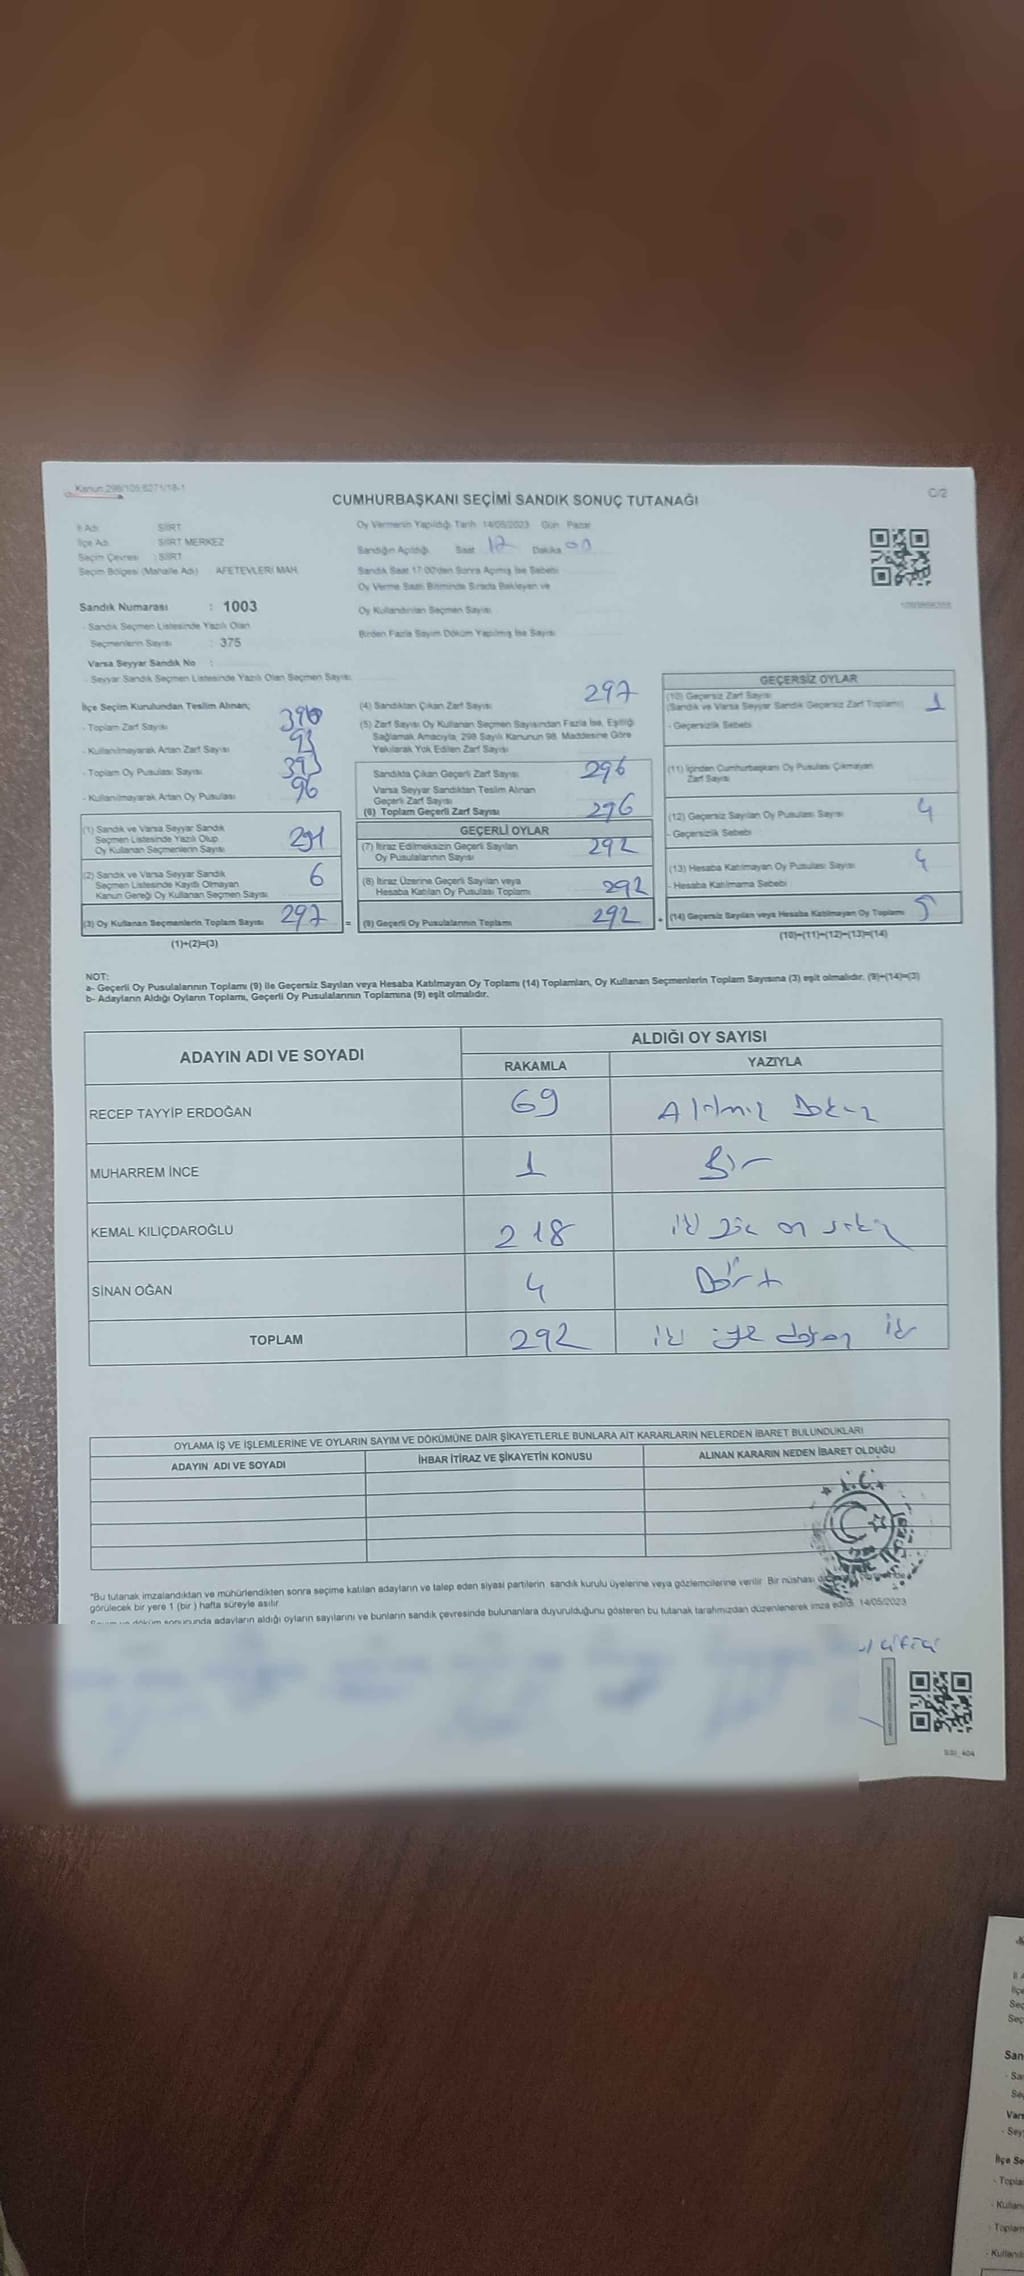 Kanun 298/105;6271/18-1
C/2
CUMHURBAŞKANI SEÇİMİ SANDIK SONUÇ TUTANAĞI
İl Adı SİİRT
İlçe Adı SİİRT MERKEZ
Seçim Çevresi : SİİRT
Seçim Bölgesi (Mahalle Adı) AFETEVLERİ MAH.
Sandık Numarası : 1003
- Sandık Seçmen Listesinde Yazılı Olan
Seçmenlerin Sayısı : 375
Varsa Seyyar Sandık No :
- Seyyar Sandık Seçmen Listesinde Yazılı Olan Seçmen Sayısı
Oy Vermenin Yapıldığı Tarih 14/05/2023 Gün Pazar
Sandığın Açıldığı Saat 17 Dakika 00
Sandık Saat 17:00'den Sonra Açılmış İse Sebebi
Oy Verme Saati Bitiminde Sırada Bekleyen ve
Oy Kullandırılan Seçmen Sayısı
Birden Fazla Sayım Döküm Yapılmış İse Sayısı
İlçe Seçim Kurulundan Teslim Alınan;
- Toplam Zarf Sayısı 390
- Kullanılmayarak Artan Zarf Sayısı 93
- Toplam Oy Pusulası Sayısı 393
- Kullanılmayarak Artan Oy Pusulası 96
(1) Sandık ve Varsa Seyyar Sandık
Seçmen Listesinde Yazılı Olup
Oy Kullanan Seçmenlerin Sayısı 291
(2) Sandık ve Varsa Seyyar Sandık
Seçmen Listesinde Kayıtlı Olmayan
Kanun Gereği Oy Kullanan Seçmen Sayısı 6
(3) Oy Kullanan Seçmenlerin Toplam Sayısı 297 =
(1)+(2)=(3)
(4) Sandıktan Çıkan Zarf Sayısı 297
(5) Zarf Sayısı Oy Kullanan Seçmen Sayısından Fazla İse, Eşitliği
Sağlamak Amacıyla, 298 Sayılı Kanunun 98. Maddesine Göre
Yakılarak Yok Edilen Zarf Sayısı
Sandıkta Çıkan Geçerli Zarf Sayısı 296
Varsa Seyyar Sandıktan Teslim Alınan
Geçerli Zarf Sayısı
(6) Toplam Geçerli Zarf Sayısı 296
GEÇERLİ OYLAR
(7) İtiraz Edilmeksizin Geçerli Sayılan
Oy Pusulalarının Sayısı 292
(8) İtiraz Üzerine Geçerli Sayılan veya
Hesaba Katılan Oy Pusulası Toplamı 292
(9) Geçerli Oy Pusulalarının Toplamı 292 +
GEÇERSİZ OYLAR
(10) Geçersiz Zarf Sayısı
(Sandık ve Varsa Seyyar Sandık Geçersiz Zarf Toplamı) 1
- Geçersizlik Sebebi
(11) İçinden Cumhurbaşkanı Oy Pusulası Çıkmayan
Zarf Sayısı
(12) Geçersiz Sayılan Oy Pusulası Sayısı 4
- Geçersizlik Sebebi
(13) Hesaba Katılmayan Oy Pusulası Sayısı 4
- Hesaba Katılmama Sebebi
(14) Geçersiz Sayılan veya Hesaba Katılmayan Oy Toplamı 5
(10)+(11)+(12)+(13)=(14)
NOT:
a- Geçerli Oy Pusulalarının Toplamı (9) ile Geçersiz Sayılan veya Hesaba Katılmayan Oy Toplamı (14) Toplamları, Oy Kullanan Seçmenlerin Toplam Sayısına (3) eşit olmalıdır. (9)+(14)=(3)
b- Adayların Aldığı Oyların Toplamı, Geçerli Oy Pusulalarının Toplamına (9) eşit olmalıdır.
ADAYIN ADI VE SOYADI
ALDIĞI OY SAYISI
RAKAMLA YAZIYLA
RECEP TAYYİP ERDOĞAN 69 Altmış Dokuz
MUHARREM İNCE 1 Bir
KEMAL KILIÇDAROĞLU 218 iki yüz on sekiz
SİNAN OĞAN 4 Dört
TOPLAM 292 iki yüz doksan iki
OYLAMA İŞ VE İŞLEMLERİNE VE OYLARIN SAYIM VE DÖKÜMÜNE DAİR ŞİKAYETLERLE BUNLARA AİT KARARLARIN NELERDEN İBARET BULUNDUKLARI
ADAYIN ADI VE SOYADI İHBAR İTİRAZ VE ŞİKAYETİN KONUSU ALINAN KARARIN NEDEN İBARET OLDUĞU
T.C.
*Bu tutanak imzalandıktan ve mühürlendikten sonra seçime katılan adayların ve talep eden siyasi partilerin sandık kurulu üyelerine veya gözlemcilerine verilir. Bir nüshası
görülecek bir yere 1 (bir ) hafta süreyle asılır.
Sayım ve döküm sonucunda adayların aldığı oyların sayılarını ve bunların sandık çevresinde bulunanlara duyurulduğunu gösteren bu tutanak tarafımızdan düzenlenerek imza edildi. 14/05/2023
San
Vars
İlçe Se
- Topla
- Kullan
- Toplam
- Kullanıl